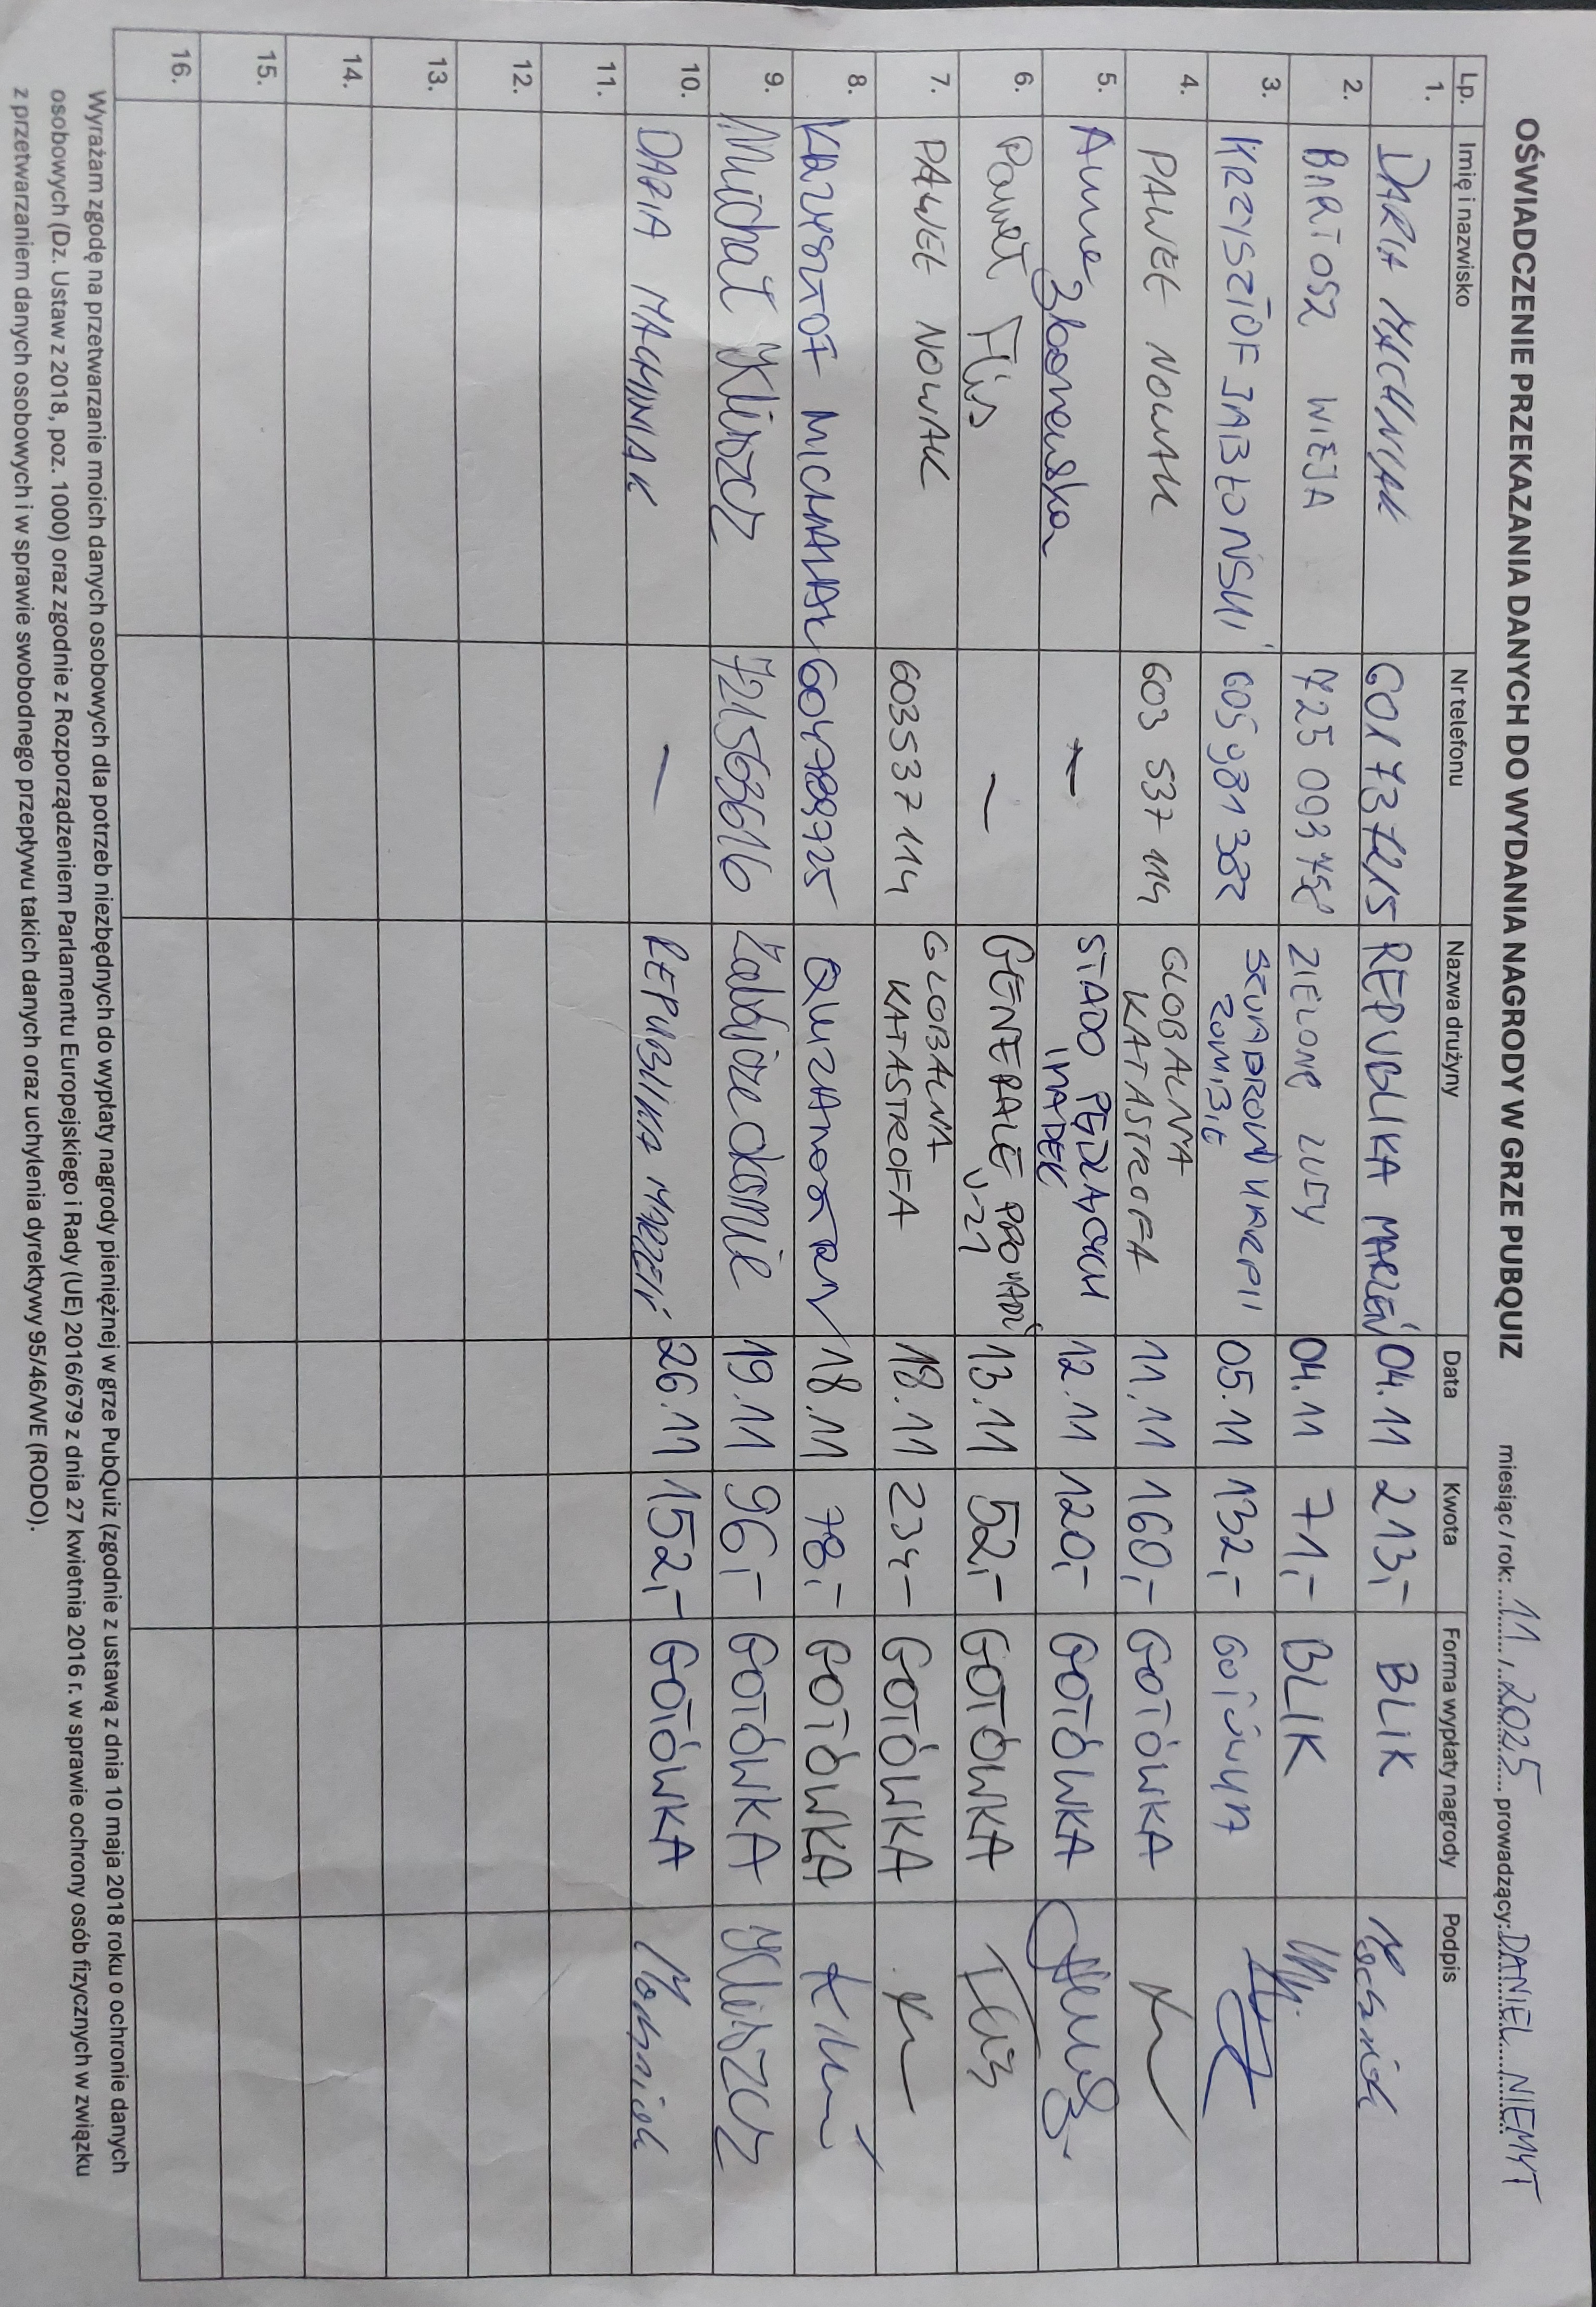 OŚWIADCZENIE PRZEKAZANIA DANYCH DO WYDANIA NAGRODY W GRZE PUBQUIZ miesiąc / rok: 11 / 2025 prowadzący: DANIEL NIEMYT
Lp. Imię i nazwisko Nr telefonu Nazwa drużyny Data Kwota Forma wypłaty nagrody Podpis
1. DARIA MACHNIAK 601737215 REPUBLIKA MARZEŃ 04.11 213,- BLIK
2. BARTOSZ WIEJA 725 093 758 ZIELONE ŻUFY 04.11 71,- BLIK
3. KRZYSZTOF JABŁOŃSKI 605 981 382 SZWADRON UKRPII 05.11 132,- GOTÓWKA
ZOMBIE
4. PAWEŁ NOWAK 603 537 114 GLOBALNA 11.11 160,- GOTÓWKA
KATASTROFA
5. Anna - STADO PĘDZĄCYCH 12.11 120,- GOTÓWKA
6. Paweł Flis - GENERALE 13.11 52,- GOTÓWKA Flis
U-21
7. PAWEŁ NOWAK 603537114 GLOBALNA 18.11 234,- GOTÓWKA
KATASTROFA
8. KRZYSZTOF MICHALAK 604789725 18.11 78,- GOTÓWKA
9. Michał Kliszcz 721563616 Żabojadzkonie 19.11 96,- GOTÓWKA Kliszcz
10. DARIA MACHNIAK - REPUBLIKA MARZEŃ 26.11 152,- GOTÓWKA Machniak
11.
12.
13.
14.
15.
16.
Wyrażam zgodę na przetwarzanie moich danych osobowych dla potrzeb niezbędnych do wypłaty nagrody pieniężnej w grze PubQuiz (zgodnie z ustawą z dnia 10 maja 2018 roku o ochronie danych
osobowych (Dz. Ustaw z 2018, poz. 1000) oraz zgodnie z Rozporządzeniem Parlamentu Europejskiego i Rady (UE) 2016/679 z dnia 27 kwietnia 2016 r. w sprawie ochrony osób fizycznych w związku
z przetwarzaniem danych osobowych i w sprawie swobodnego przepływu takich danych oraz uchylenia dyrektywy 95/46/WE (RODO).